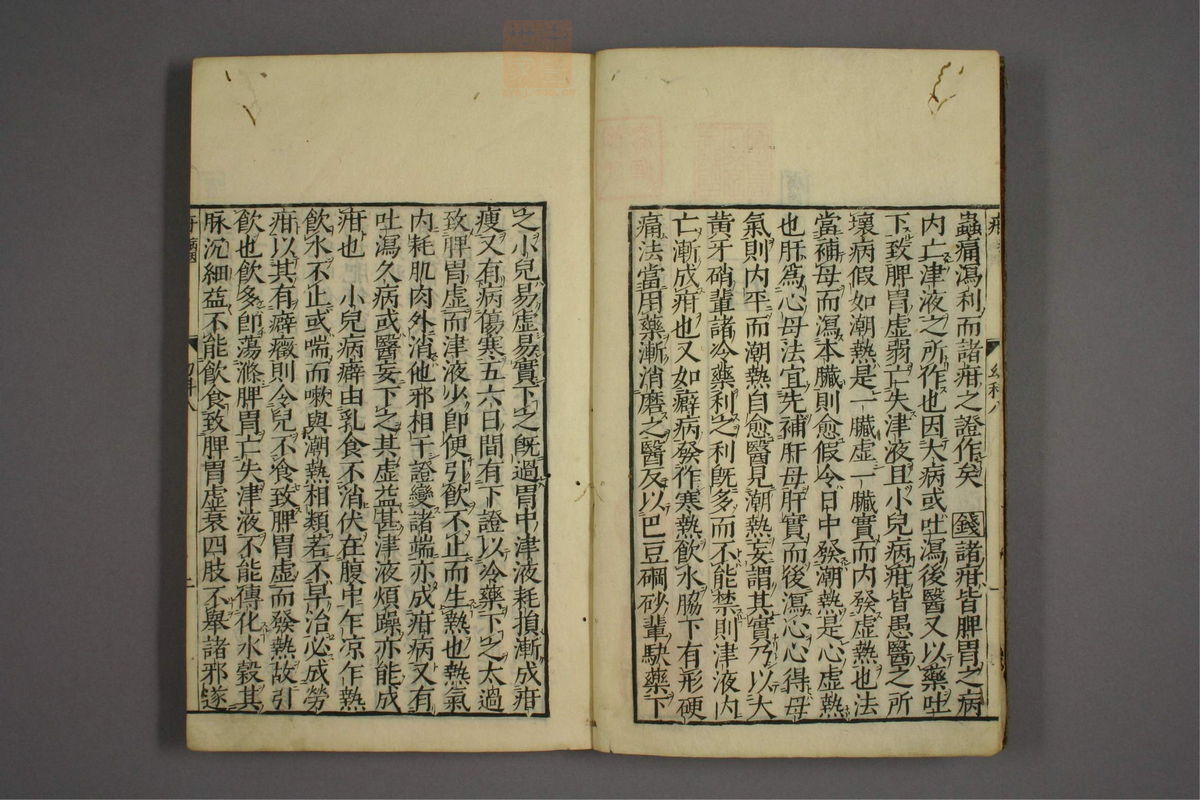 蟲痛瀉利而諸疳之證作矣　錢諸疳皆脾胃之病
内亡津液之所作也因大病或吐瀉後醫又以藥吐
下致脾胃虚弱亡失津液且小兒病疳皆愚醫之所
壞病假如潮熱是一臟虚一臟實而内發虚熱也法
當補母而瀉本臟則愈假令日中發潮熱是心虚熱
也肝爲心母法宜先補肝母肝實而後瀉心心得母
氣則内平而潮熱自愈醫見潮熱妄謂其實乃以大
黃牙硝輩諸冷藥利之利既多而不能禁則津液内
亡漸成疳也又如癖病發作寒熱飲水脇下有形硬
痛法當用藥漸消磨之醫反以巴豆硇砂輩駃藥下
之小兒易虚易實下之既過胃中津液耗損漸成疳
瘦又有病傷寒五六日間有下證以冷藥下之太過
致脾胃虚而津液少即使引飲不止而生熱也熱氣
内耗肌肉外消他邪相干證變諸端亦成疳病又有
吐瀉久病或醫妄下之其虚益甚津液煩躁亦能成
疳也　小兒病癖由乳食不消伏在腹中乍凉乍熱
飲水不止或喘而嗽與潮熱相類若不早治必成勞
疳以其有癖癥則令兒不食致脾胃虚而發熱故引
飲也飲多即蕩滌脾胃亡失津液不能傳化水穀其
脉沉細益不能飲食致脾胃虚衰四肢不舉諸邪遂